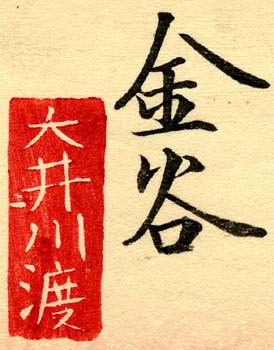 金谷
大井川渡